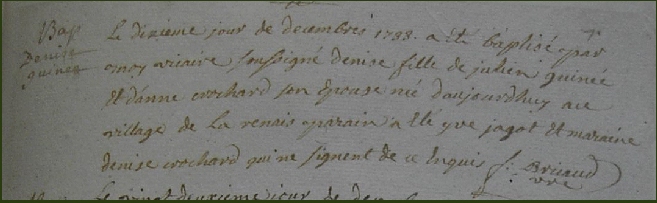 Bap
Denise
guinee
Le dixieme jour de decembres 1788. a eté baptisé par
moy vicaire soussigné denise fille de julien guinée
Et d'anne crochard son Epouse née d'aujourdhuy au
village de La renais parain a Eté yve jagot Et maraine
denise crochard qui ne signent de ce Enquis f: Briand
vre
Le vingt deuxieme jour de